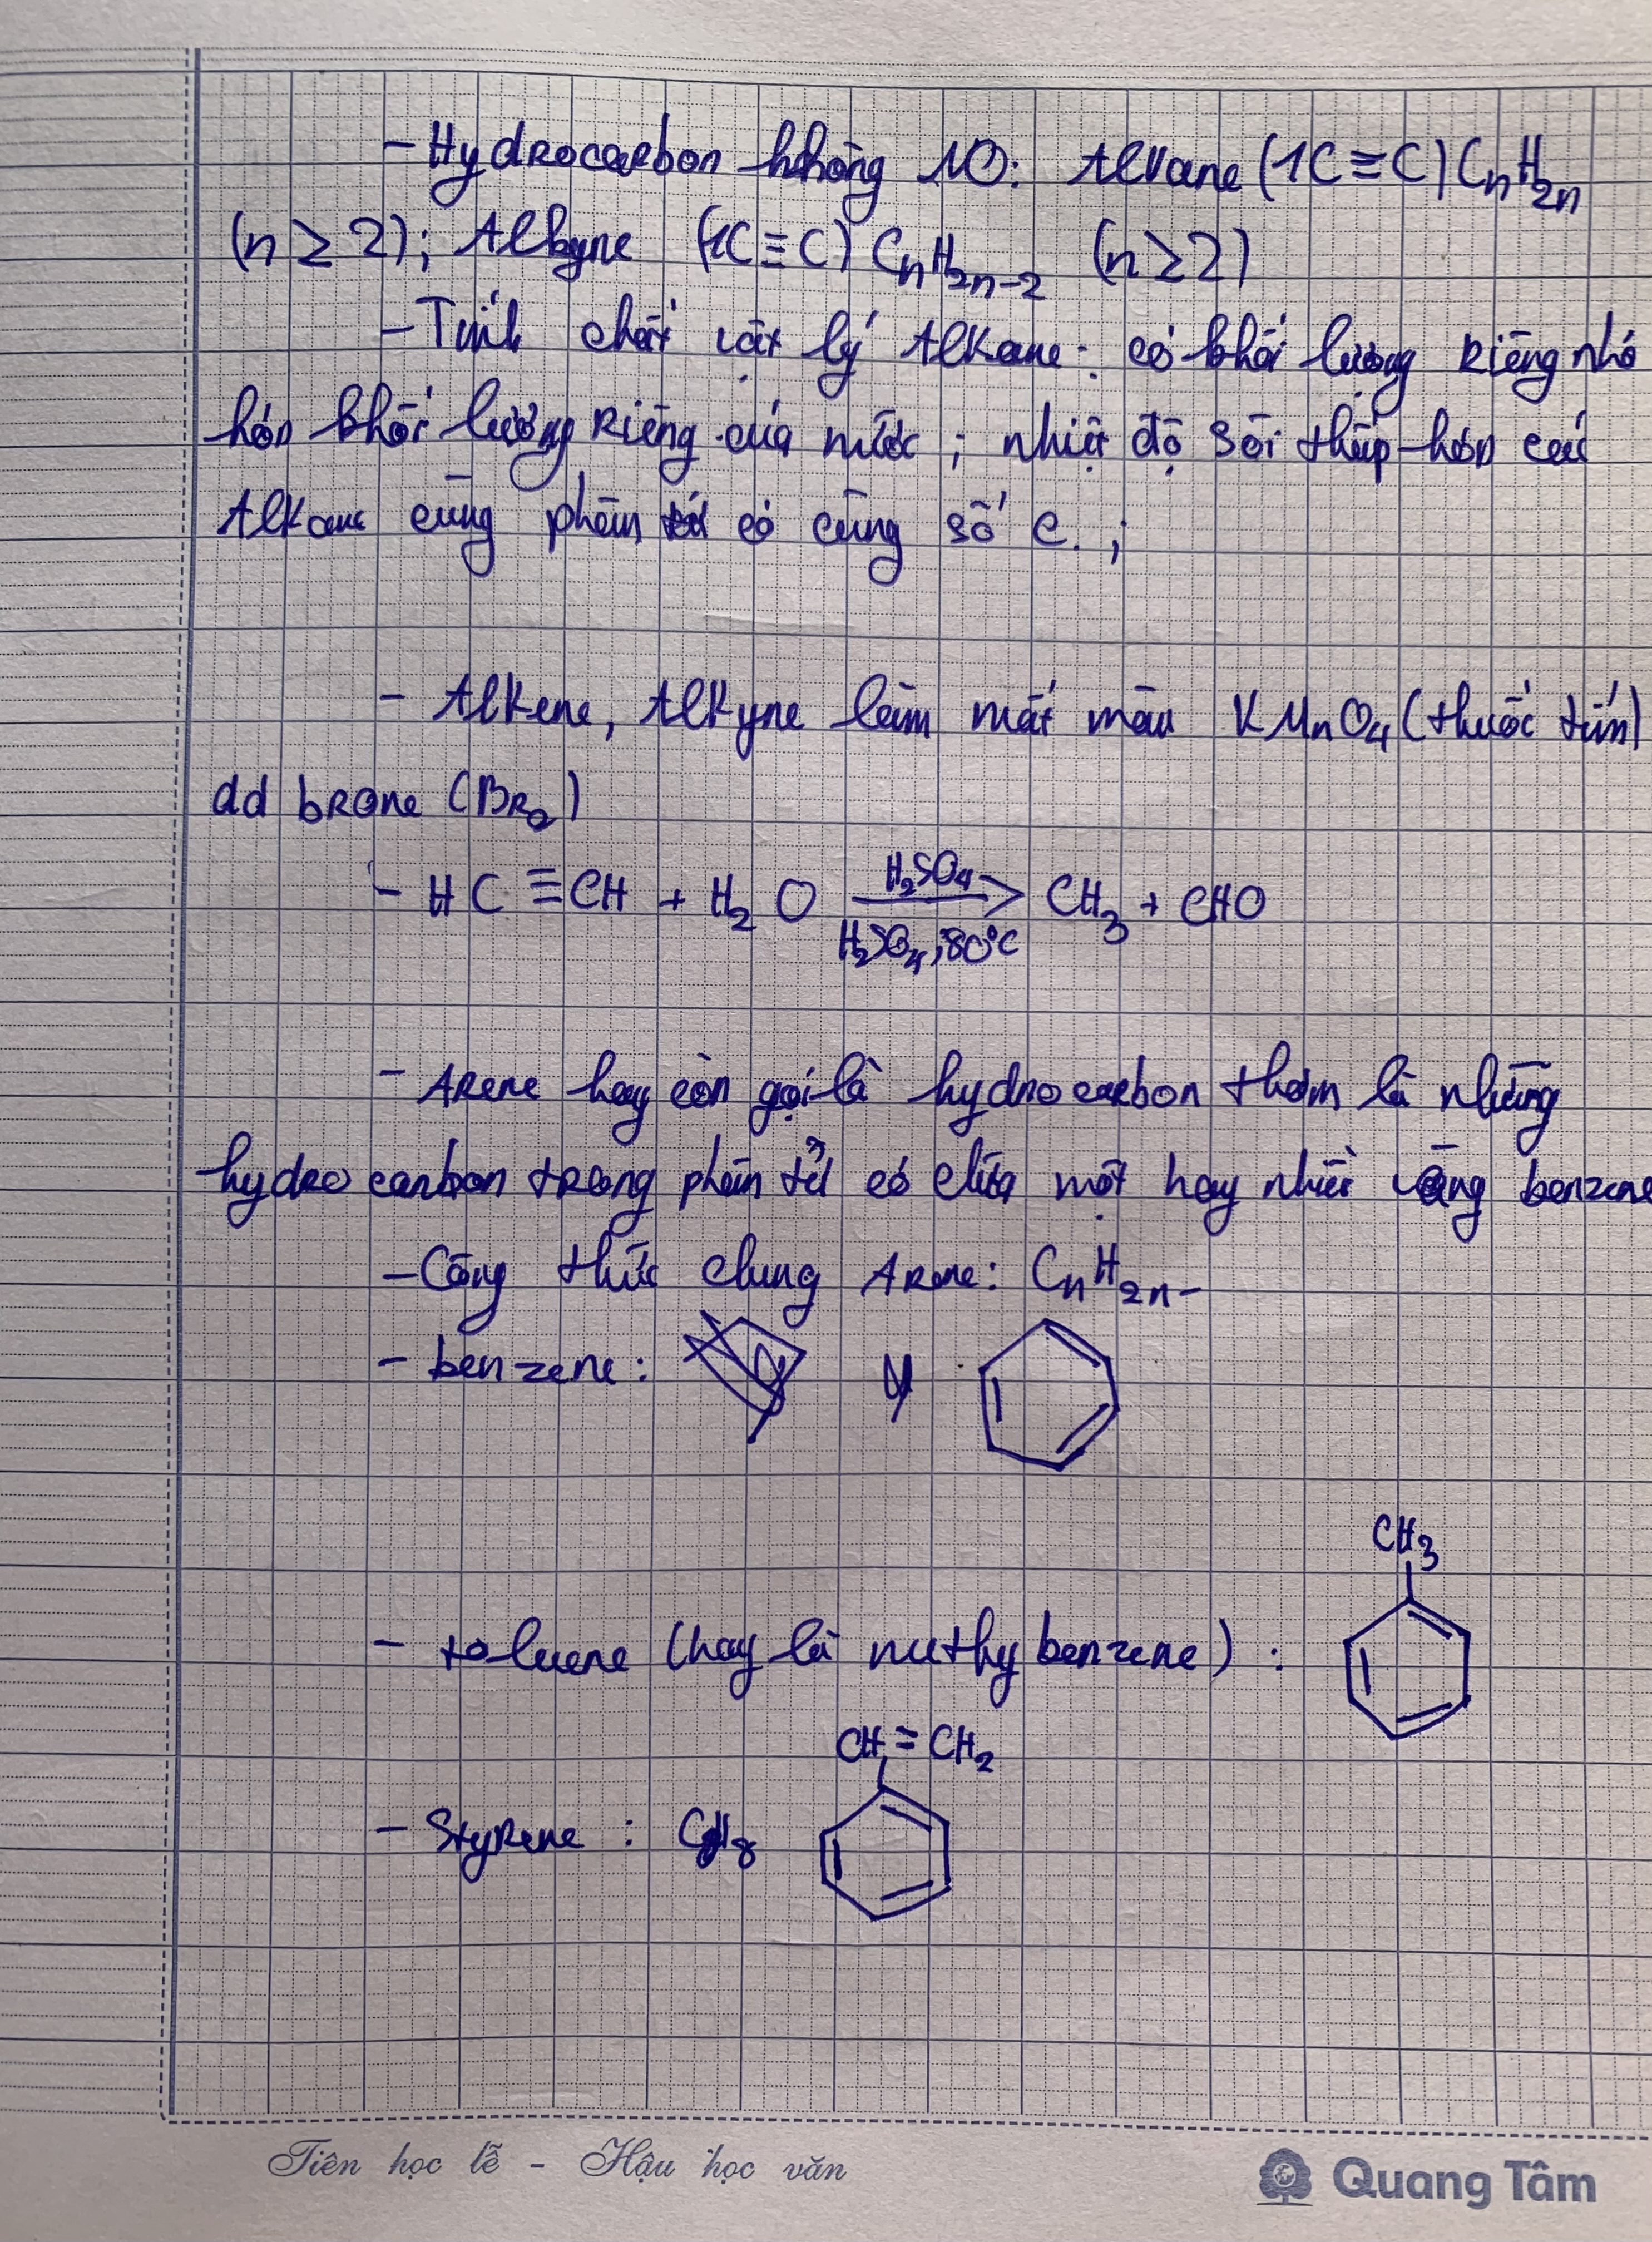 - Hydrocarbon không NO: Alkane (1C≡C) CnH2n
(n ≥ 2); Alkyne (1C≡C) CnH2n-2 (n ≥ 2)
- Tính chất vật lý Alkane: có khối lượng riêng nhỏ
hơn khối lượng riêng của nước; nhiệt độ sôi thấp hơn các
Alkane cùng phân tử có cùng số C.;
- Alkene, Alkyne làm mất màu KMnO4 (thuốc tím)
dd brome (Br2)
- HC ≡ CH + H2O H2SO4 → H2SO4, 80°C CH3 + CHO
- Arene hay còn gọi là hydrocarbon thơm là những
hydrocarbon trong phân tử có chứa một hay nhiều vòng benzene
- Công thức chung Arene: CnH2n-
- benzene:
CH3
- toluene (hay là methybenzene):
CH = CH2
- Styrene : C8H8
Tiên học lễ - Hậu học văn
Quang Tâm